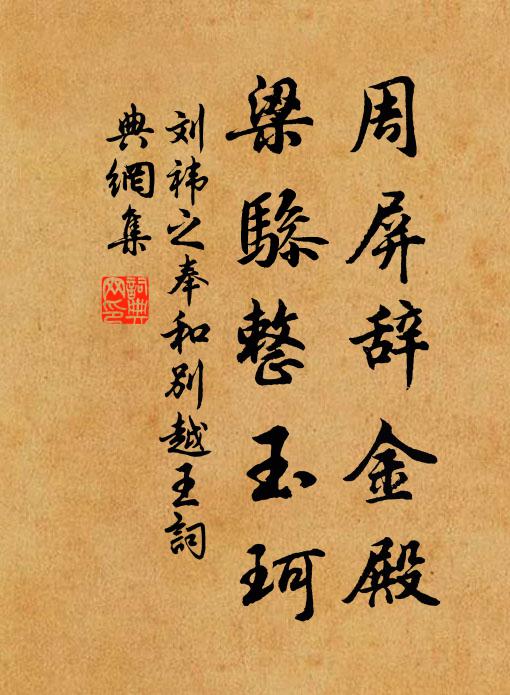 周屏辞金殿
梁骖整玉珂
刘祎之奉和别越王詞
典網集
詞典网印